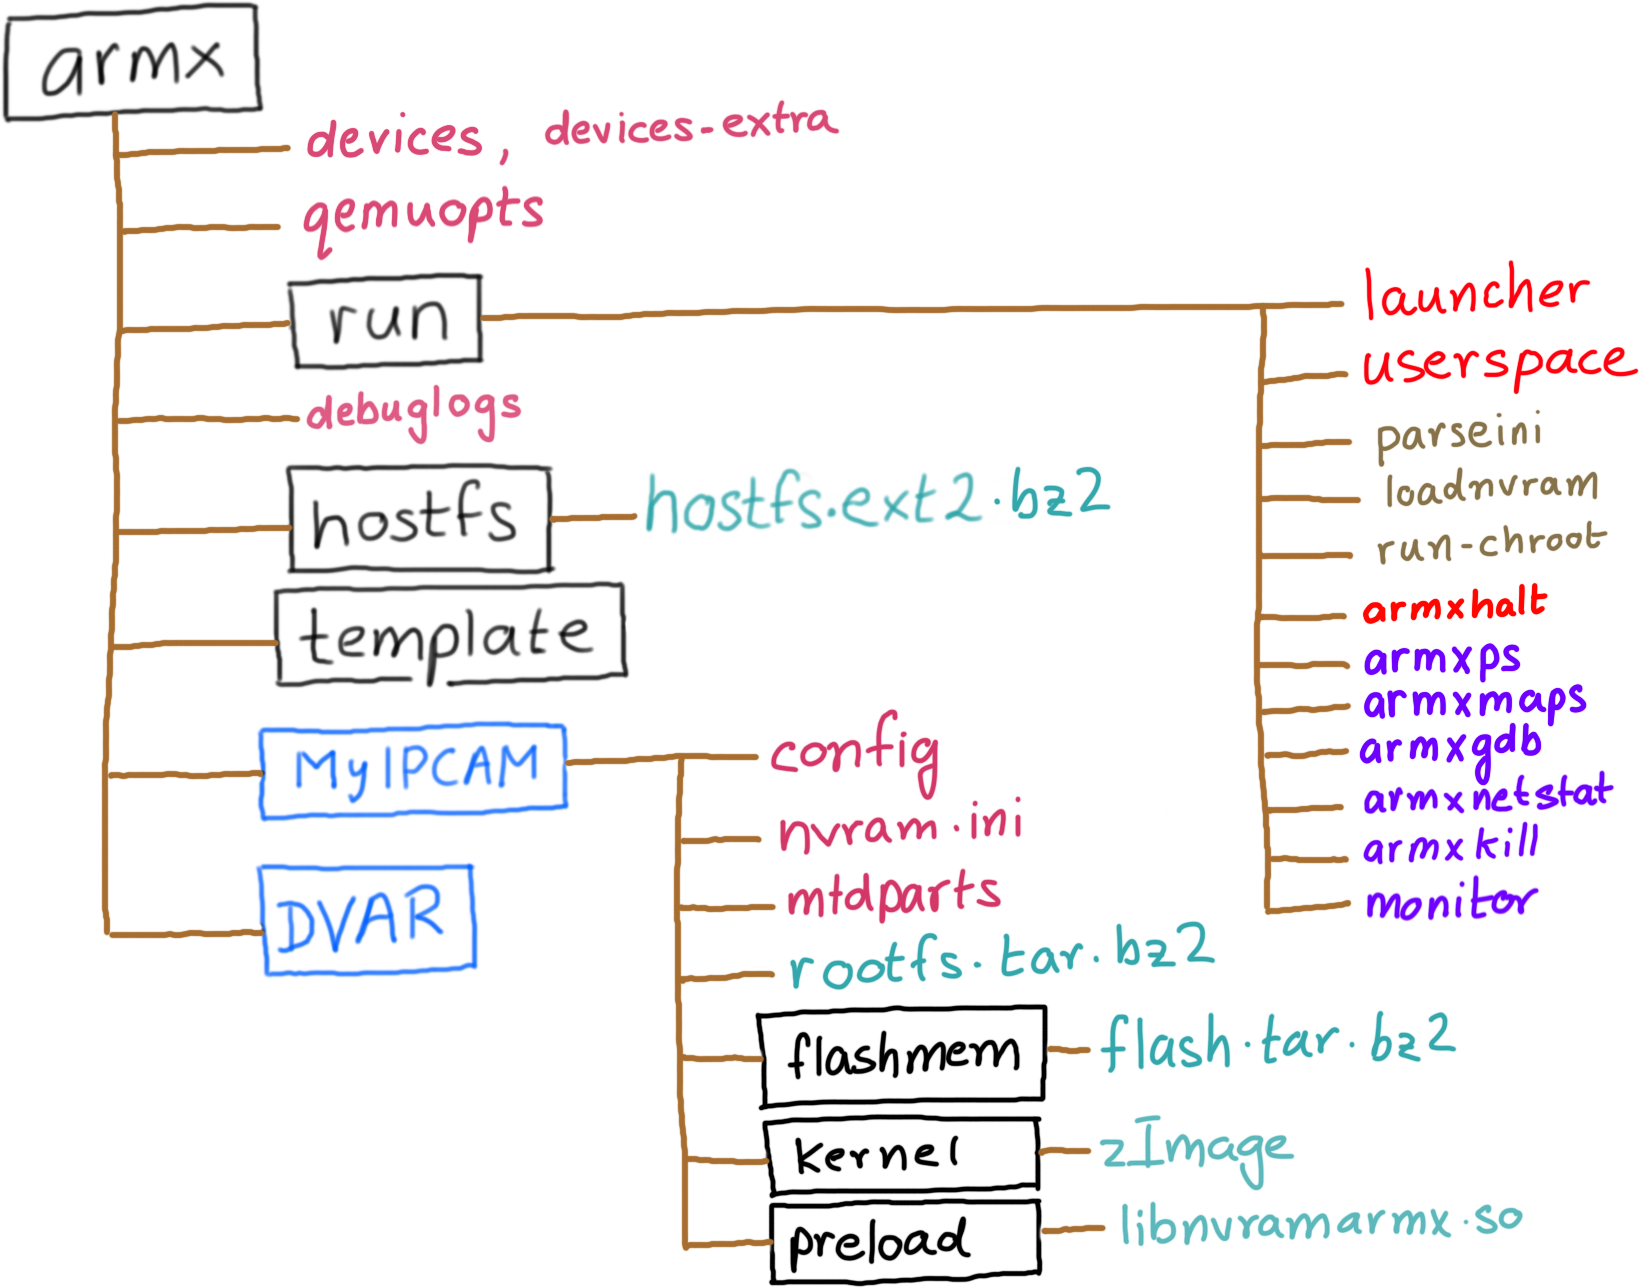 armx
devices, devices-extra
qemuopts
run
launcher
userspace
parseini
loadnvram
run-chroot
armxhalt
armxps
armxmaps
armxgdb
armxnetstat
armxkill
monitor
debuglogs
hostfs
hostfs.ext2.bz2
template
MyIPCAM
config
nvram.ini
mtdparts
rootfs.tar.bz2
flashmem
flash.tar.bz2
kernel
zImage
preload
libnvramarmx.so
DVAR